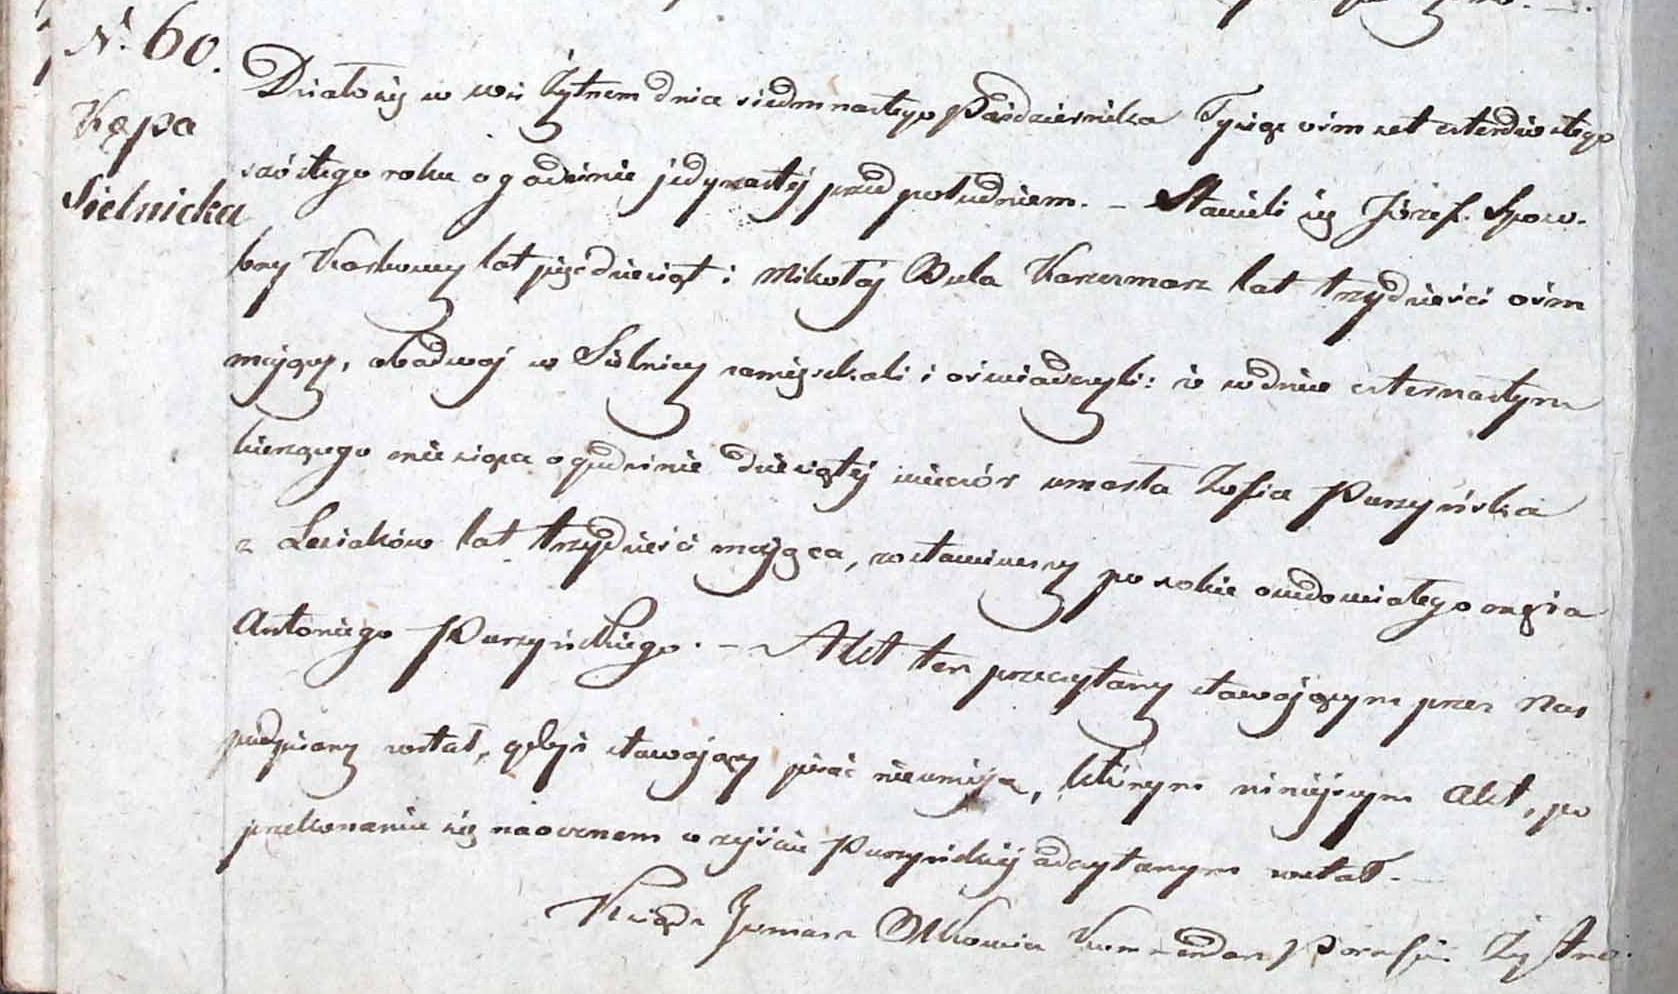 N. 60.
Kępa
Sielnicka
Działo się w wsi Żytnem dnia siedmnastego Października Tysiąc ośmset czterdziestego
szóstego roku o godzinie jedynastej przed południem. – Stawili się Józef
Karbowy lat pięćdziesiąt i Mikołaj Bula Karczmarz lat trzydzieści ośm
mający, obadwaj w Sielnicy zamieszkali i oświadczyli: iż w dniu czternastym
bieżącego miesiąca o godzinie dziesiątej wieczór umarła Zofia Purzyńska
z Lesiaków lat trzydzieści mająca, zostawiwszy po sobie owdowiałego męża
Antoniego Purzyńskiego. – Akt ten przeczytany stawającym przez Nas
podpisany został, gdyż stawający pisać nieumieją, którym niniejszym Akt, po
przekonaniu się naocznem o zejściu Purzyńskiej odczytanym został. –
Ksiądz Tomasz Kommendarz Parafii Żytno.